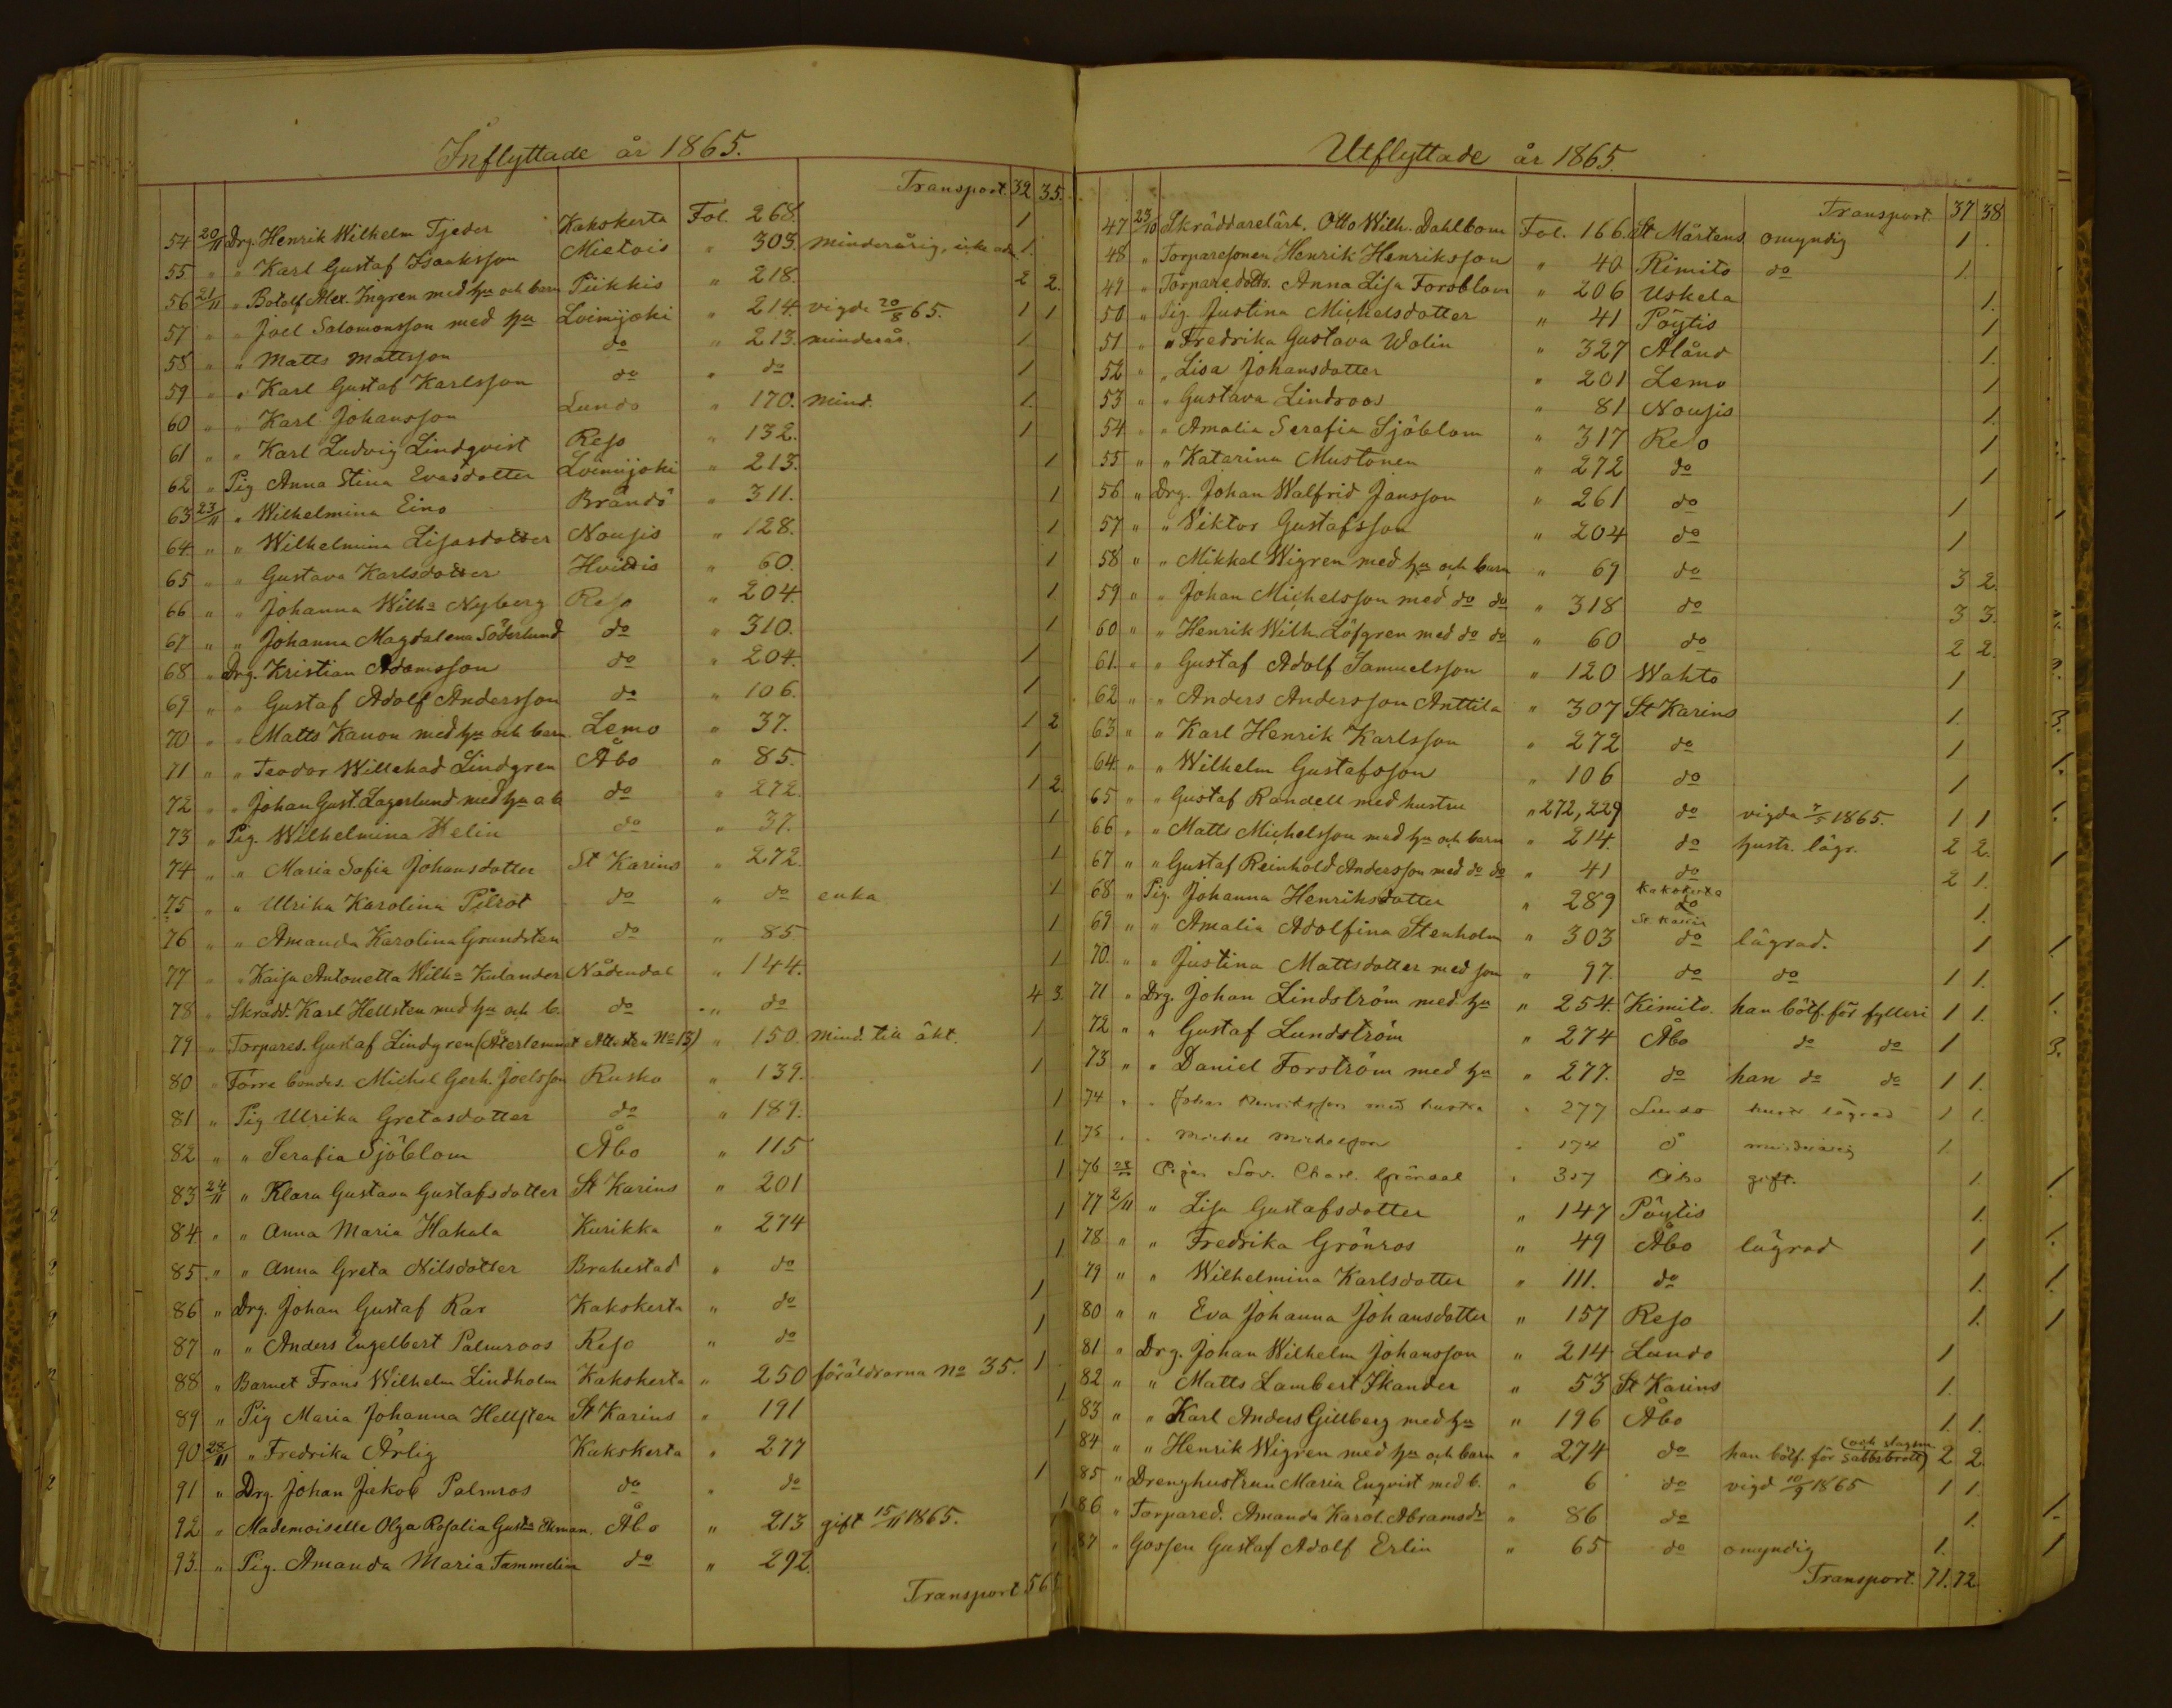 Inflyttade år 1865.
Transport. 32 35.
54 20/11 Drg. Henrik Wilhelm Tjeder Kakskerta Fol. 268. 1
55 " " Karl Gustaf Isaaksson Mietois " 303. minderårig, 1.
56 21/11 " Botolf Alex. Ingren med hu och barn Piikkis " 218. 2 2.
57 " " Joel Salomonsson med hu Loimijoki " 214. vigde 20/8 65. 1 1
58 " " Matts Mattsson do " 213. minderår. 1
59 " " Karl Gustaf Karlsson do " do 1
60 " " Karl Johansson Lundo " 170. mind. 1.
61 " " Karl Ludvig Lindqvist Reso " 132. 1
62 " Pig Anna Stina Evasdotter Loimijoki " 213. 1
63 23/11 " Wilhelmina Eino Brändö " 311. 1
64 " " Wilhelmina Lisasdotter Nousis " 128. 1
65 " " Gustava Karlsdotter Hvittis " 60. 1
66 " " Johanna Wilha Nyberg Reso " 204. 1
67 " " Johanna Magdalena Söderlund do " 310. 1
68 " Drg. Kristian Adamsson do " 204. 1
69 " " Gustaf Adolf Andersson do " 106. 1
70 " " Matts Kanon med hu och barn Lemo " 37. 1 2
71 " " Teodor Willehad Lindgren Åbo " 85. 1
72 " " Johan Gust. Lagerlund med hu o b do " 272. 1 2.
73 " Pig. Wilhelmina Helin do " 37. 1
74 " " Maria Sofia Johansdotter St Karins " 272. 1
75 " " Ulrika Karolina Pilrot do " do enka 1
76 " " Amanda Karolina Grundsten do " 85 1
77 " " Kaisa Antonetta Wilha Kulander Nådendal " 144. 1
78 " Skrädd. Karl Hellsten med hu och b. do " do 4 3.
79 " Torpares. Gustaf Lindgren (Återlemnat Attesten No 13) " 150. mind. till äkt. 1
80 " Förre bondes. Michel Gerh. Joelsson Rusko " 139. 1
81 " Pig Ulrika Gretasdotter do " 189. 1
82 " " Serafia Sjöblom Åbo " 115 1
83 24/11 " Klara Gustava Gustafsdotter St Karins " 201 1
84 " " Anna Maria Hakala Kurikka " 274 1
85 " " Anna Greta Nilsdotter Brahestad " do 1
86 " Drg. Johan Gustaf Rar Kakskerta " do 1
87 " " Anders Engelbert Palmroos Reso " do 1
88 " Barnet Frans Wilhelm Lindholm Kakskerta " 250 föräldrarna No 35. 1
89 " Pig Maria Johanna Hellsten St Karins " 191 1
90 28/11 " Fredrika Ärlig Kakskerta " 277 1
91 " Drg. Johan Jakob Palmros do " do 1
92 " Mademoiselle Olga Rosalia Gusta Ekman. Åbo " 213 gift 15/11 1865. 1
93. " Pig. Amanda Maria Tammelin do " 292. 1
Transport 56
Utflyttade år 1865.
Transport 37 38
47 23/10 Skräddarelärl. Otto Wilh. Dahlbom Fol. 166. St Mårtens omyndig 1
48 " Torparesonen Henrik Henriksson " 40 Rimito do 1.
49 " Torparedottr. Anna Lisa Forsblom " 206 Uskela 1.
50 " Pig Justina Michelsdotter " 41 Pöytis 1
51 " " Fredrika Gustava Wolin " 327 Åland 1.
52 " " Lisa Johansdotter " 201 Lemo 1
53 " " Gustava Lindroos " 81 Nousis 1.
54 " " Amalia Serafia Sjöblom " 317 Reso 1
55 " " Katarina Mustonen " 272 do 1
56 " Drg. Johan Walfrid Jansson " 261 do 1
57 " " Viktor Gustafsson " 204 do 1
58 " " Mikkel Wigren med hu och barn " 69 do 3 2.
59 " " Johan Michelsson med do do " 318 do 3 3.
60 " " Henrik Wilh. Löfgren med do do " 60 do 2 2.
61. " " Gustaf Adolf Samuelsson " 120 Wahto 1
62 " " Anders Andersson Anttila " 307 St Karins 1.
63 " " Karl Henrik Karlsson " 272 do 1
64. " " Wilhelm Gustafsson " 106 do 1
65 " " Gustaf Randell med hustru " 272, 229 do vigda 7/5 1865. 1 1
66 " " Matts Michelsson med hu och barn " 214. do hustr. lägr. 2 2.
67 " " Gustaf Reinhold Andersson med do do " 41 do 2 1.
68 " Pig. Johanna Henriksdotter " 289 Kakskerta do 1.
69 " " Amalia Adolfina Stenholm " 303 St Karin do lägrad. 1
70. " " Justina Mattsdotter med son " 97. do do 1 1.
71 " Drg. Johan Lindström med hu " 254. Kimito. han bötf. för fylleri 1 1.
72 " " Gustaf Lundström " 274 Åbo do do 1
73 " " Daniel Forström med hu " 277. do han do do 1 1.
74 " " Johan Henriksson med hustru " 277 Lundo hustr lägrad 1 1.
75 " " Michel Michelsson " 174 minderårig 1.
76 Pigan Lov. Charl. Gröndal " 307 Åbo gift. 1.
77 2/11 " Lisa Gustafsdotter " 147 Pöytis 1.
78 " " Fredrika Grönros " 49 Åbo lägrad 1
79 " " Wilhelmina Karlsdotter " 111. do 1.
80 " " Eva Johanna Johansdotter " 157 Reso 1.
81 " Drg. Johan Wilhelm Johansson " 214 Lundo 1
82 " " Matts Lambert Skander " 53 St Karins 1.
83 " " Karl Anders Gillberg med hu " 196 Åbo 1. 1.
84 " " Henrik Wigren med hu och barn " 274 do han bötf. för sabbtsbrott (och slagsm.) 2 2.
85 " Drenghustrun Maria Enqvist med b. " 6 do vigd 10/9 1865 1 1.
86 " Torpared. Amanda Karol. Abramsdr " 86 do 1.
87 " Gossen Gustaf Adolf Erlin " 65 do omyndig 1.
Transport. 71. 72